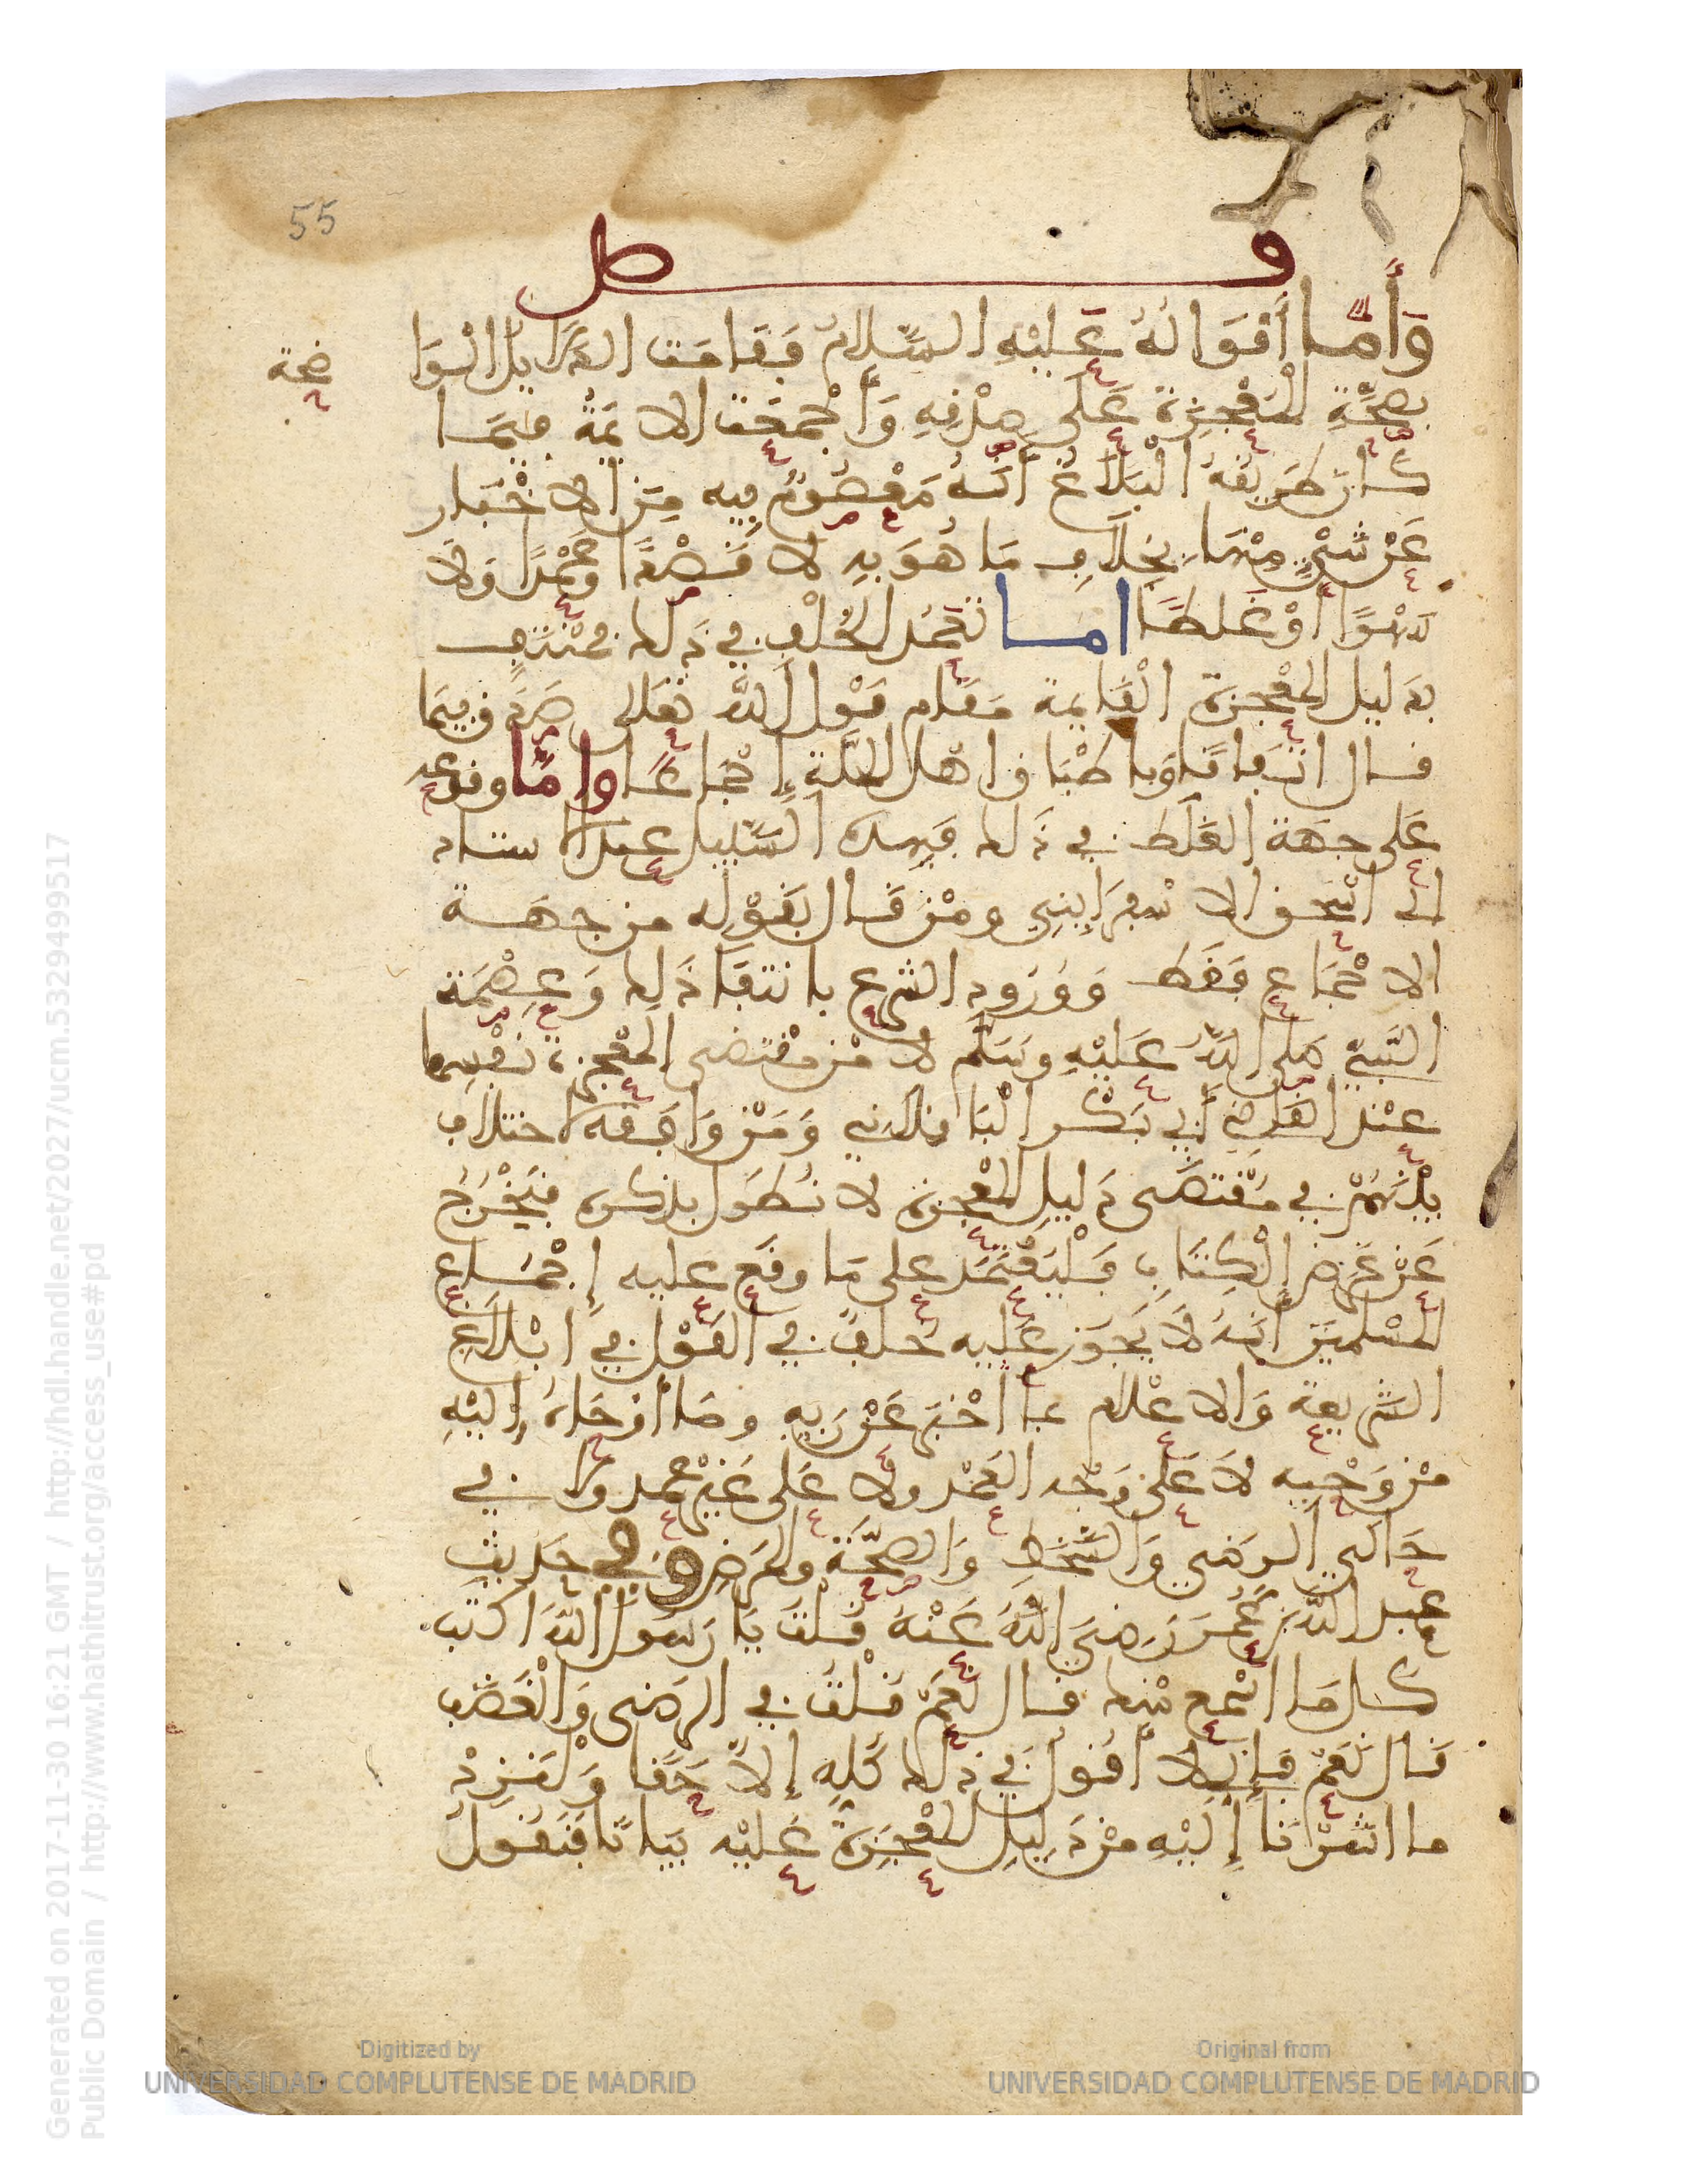 55
فصل
وَأَمَّا أَقْوَالُهُ عَلَيْهِ السَّلامُ فَقَامَت الدَّلَايِلُ الْوَا
ضحة
بصِحَّةِ الْمُعْجِزَة عَلَى صِدْقِهِ وَأَجْمَعَت الايمَةُ فيمَا
كان طَرِيقُهُ الْبَلَاغُ أنَّهُ مَعْصُومٌ فِيه مِنَ الاخْبَار
عَنْ شَيْءٍ مِنْهَا بِخِلَافِ مَا هُوَ بِهِ لا قَصْدًا وعَمْدًا وَلَا
سَهْوًا أوْ غَلَطًا اما تعَمُّد الخُلْفِ في ذَلك فمُنْتَفٍ
بدَليل المعْجزَة الْقَايمَة مَقَام قَوْل اللهِ تعَلى صَدَقَ فيمَا
قال اتفَاقًا وَباطْبَاق اهْل المِلَّةِ إجْمَاعًا وامَّا وقوعه
عَلى جهَة الغَلَط في ذَلك فَبِهذه السَّبيل عند الاستاذ
ابي اسْحق الاسْفِرَاييني ومَنْ قَال بقَوْلِه من جهَة
الاجْمَاع فقَط وَوُرُود الشرع بانتفَاء ذَلك وَعِصْمَة
النَّبيّ صَلى اللهُ عَلَيْهِ وسَلَّم لا مْن مقْتضى المعْجزة نفْسِها
عنْد القاضي أبي بَكْر الْبَاقلانِي وَمَنْ وَافَقَه لاختلاف
بيْنَهُمْ في مُقْتضَى دَليلِ المعْجزة لا نُطَول بذكره فنَخْرُجُ
عَنْ غَرَضِ الْكِتَابِ فَلْيُعْتَمَد على مَا وقَع عليه إجْمَاع
المسْلمِينَ أنَّهُ لَا يَجُوز عَليه خلف في القَوْل في ابْلَاغِ
الشَّريعة وَالاعْلَام بما أخْبَر عَنْ رَبِهِ ومَا أوْحَاهُ إِلَيْهِ
مْن وَحْيِه لَا عَلى وَجْه العَمْد ولا عَلى غَيْر عمد ولا في
حَالَي الرضى وَالسَّخَط وَالصِّحَّة والمَرَضِ وفي حَديثِ
عبد اللَّهِ بن عُمَرَ رَضِيَ اللَّهُ عَنْهُ قُلْتُ يَا رَسُولَ اللَّه أاكتب
كل مَا اسْمع مْنك قال نَعَمْ قلْتُ في الرضَى وَالْغَضَب
قَال نَعَمْ فإنِي لا أقُولُ في ذلك كُلِهِ إلا حَقًا وَلْنَزِدْ
ما اشَرْنَا إِلَيْهِ منْ دَلِيلِ المُعْجِزَة عَليْه بيَانًا فَنَقُولُ
Generated on 2017-11-30 16:21 GMT / http://hdl.handle.net/2027/ucm.5329499517
Public Domain / http://www.hathitrust.org/access_use#pd
Digitized by
UNIVERSIDAD COMPLUTENSE DE MADRID
Original from
UNIVERSIDAD COMPLUTENSE DE MADRID